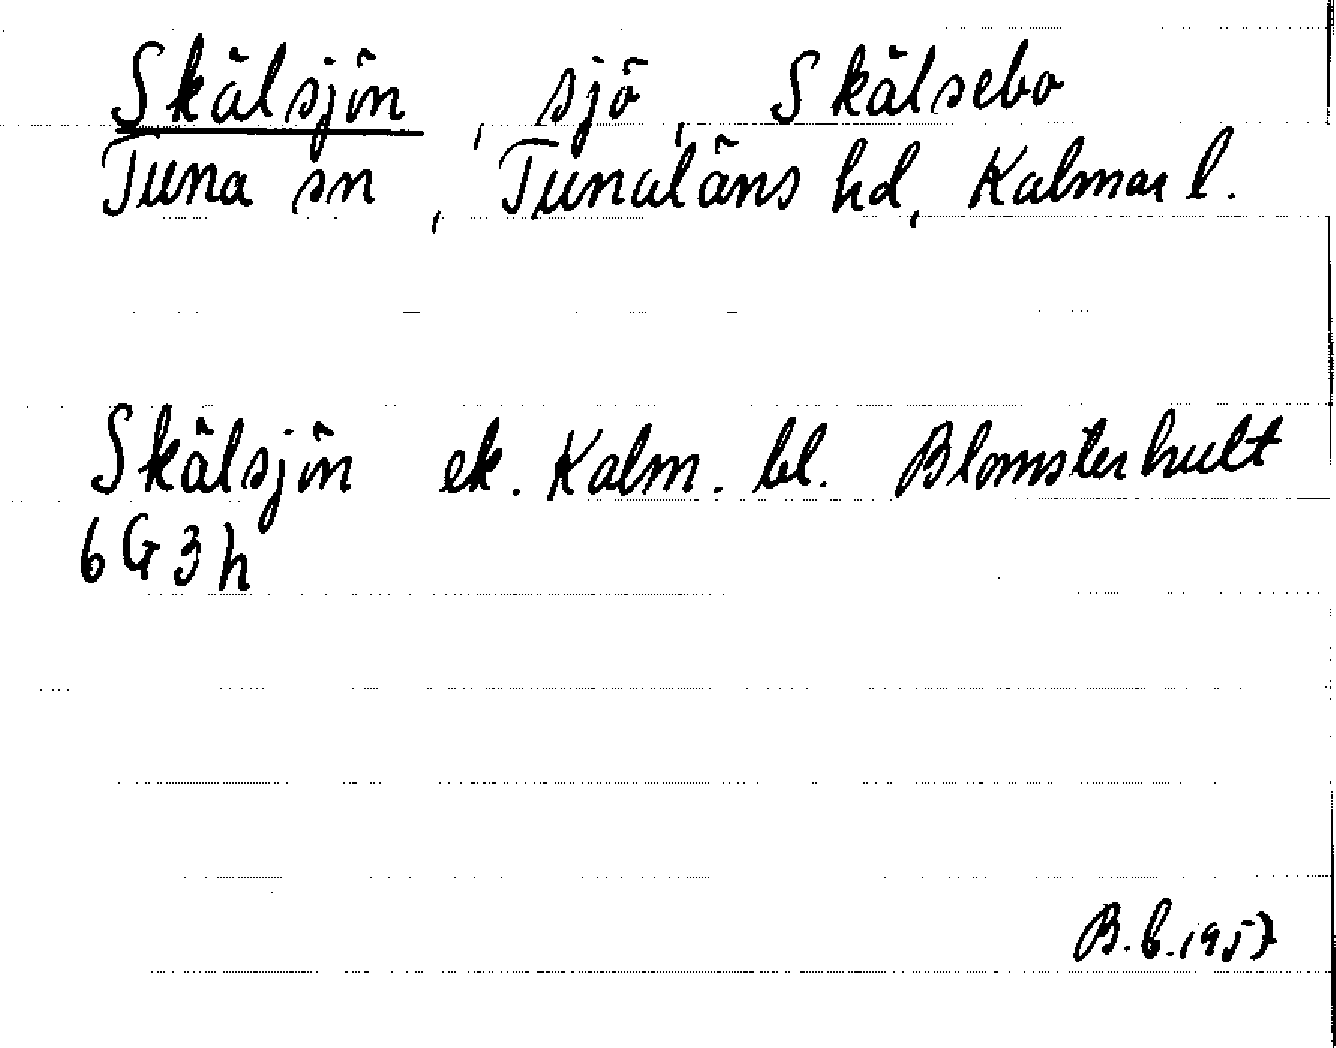 Skälsjön, sjö, Skälsebo
Tuna sn, Tunaläns hd, Kalmar l.
Skälsjön ek. Kalm. bl. Blomsterhult
6G3h
B.b. 1957